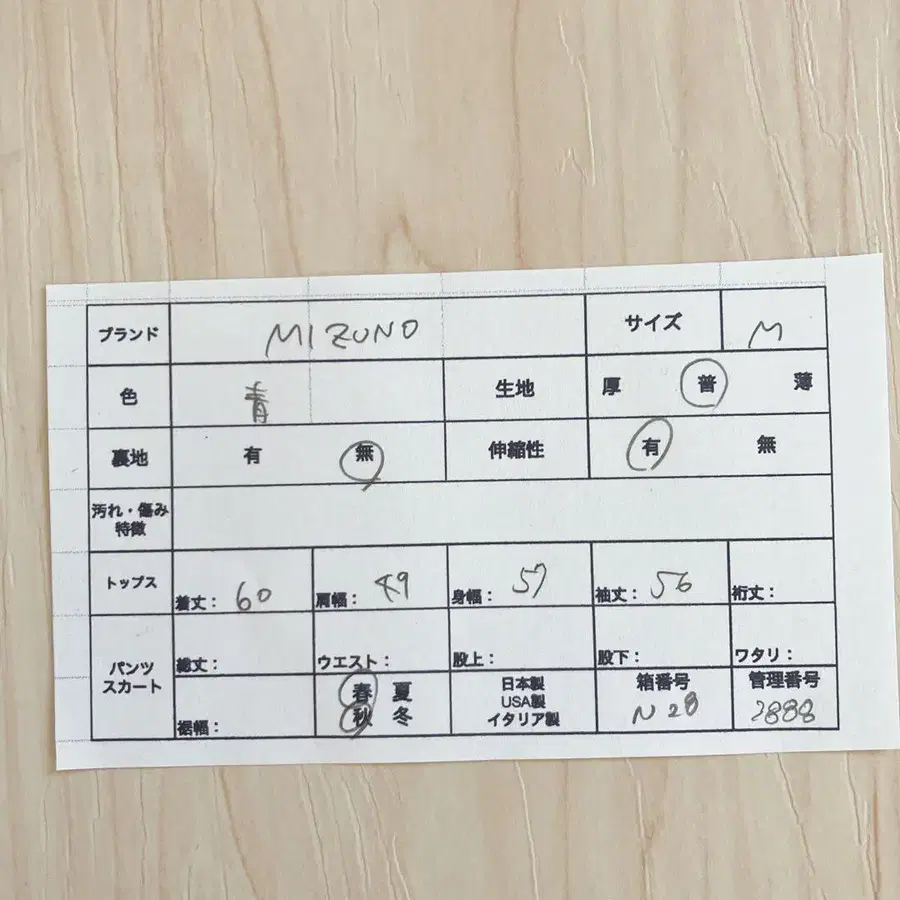 ブランド MIZUNO サイズ M
色 青 生地 厚 普 薄
裏地 有 無 伸縮性 有 無
汚れ・傷み
特徴
トップス 着丈： 60 肩幅： 49 身幅： 57 袖丈： 56 裄丈：
パンツ
スカート 総丈： ウエスト： 股上： 股下： ワタリ：
裾幅： 春 夏
秋 冬
日本製
USA製
イタリア製
箱番号
N 28
管理番号
2888